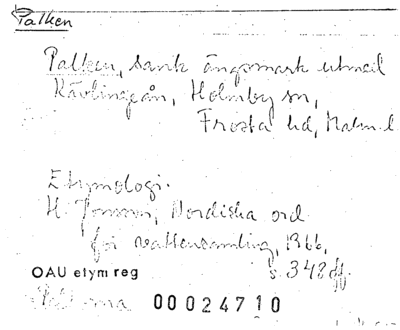 Palken
Palken, sank ängsmark utmed
Kävlingeån, Holmby sn,
Frosta hd, Malm. l
Etymologi.
H. Jonsson, Nordiska ord
för vattensamling, 1966,
s. 348 ff.
OAU etym reg
00024710